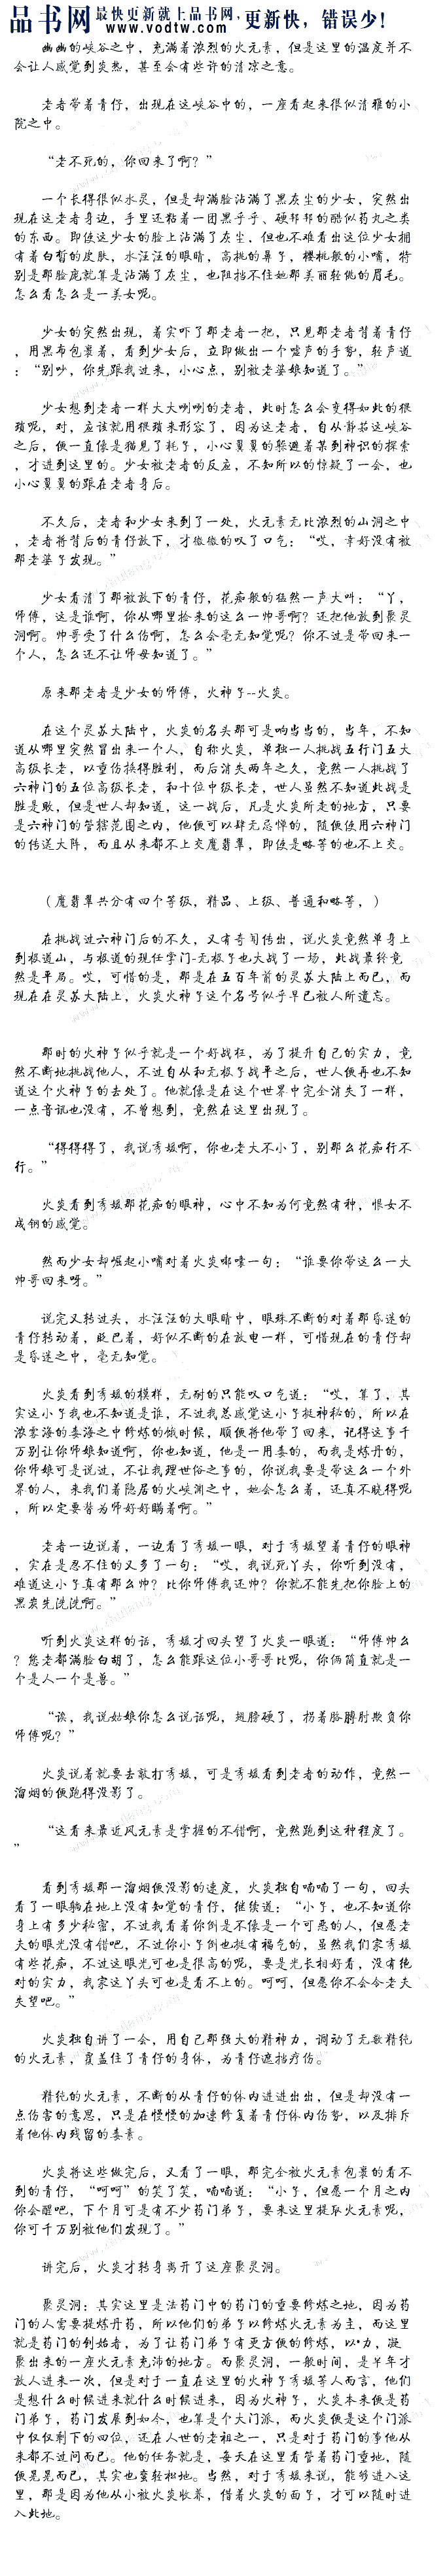 品书网 最快更新就上品书网,更新快,错误少!
www.vodtw.com
幽幽的峡谷之中,充满着浓烈的火元素,但是这里的温度并不
会让人感觉到炎热,甚至会有些许的清凉之意。
老者带着青仔,出现在这峡谷中的,一座看起来很似清雅的小
院之中。
“老不死的,你回来了啊?”
一个长得很似水灵,但是却满脸沾满了黑灰尘的少女,突然出
现在这老者身边,手里还粘着一团黑乎乎、硬邦邦的酷似药丸之类
的东西。即使这少女的脸上沾满了灰尘,但也不难看出这位少女拥
有着白皙的皮肤,水汪汪的眼睛,高挑的鼻子,樱桃般的小嘴,特
别是那脸庞就算是沾满了灰尘,也阻挡不住她那美丽轻佻的眉毛。
怎么看怎么是一美女呢。
少女的突然出现,着实吓了那老者一把,只见那老者背着青仔
,用黑布包裹着,看到少女后,立即做出一个嘘声的手势,轻声道
:“别吵,你先跟我过来,小心点,别被老婆娘知道了。”
少女想到老者一样大大咧咧的老者,此时怎么会变得如此的猥
琐呢,对,应该就用猥琐来形容了,因为这老者,自从静若这峡谷
之后,便一直像是猫见了耗子,小心翼翼的躲避着某到神识的探索
,才进到这里的。少女被老者的反应,不知所以的惊疑了一会,也
小心翼翼的跟在老者身后。
不久后,老者和少女来到了一处,火元素无比浓烈的山洞之中
,老者将背后的青仔放下,才微微的叹了口气:“哎,幸好没有被
那老婆子发现。”
少女看清了那被放下的青仔,花痴般的猛然一声大叫:“丫,
师傅,这是谁啊,你从哪里捡来的这么一帅哥啊?还把他放到聚灵
洞啊。帅哥受了什么伤啊,怎么会毫无知觉呢?你不过是带回来一
个人,怎么还不让师母知道了。”
原来那老者是少女的师傅,火神子--火炎。
在这个灵苏大陆中,火炎的名头那可是响当当的,当年,不知
道从哪里突然冒出来一个人,自称火炎,单独一人挑战五行门五大
高级长老,以重伤换得胜利,而后消失两年之久,竟然一人挑战了
六神门的五位高级长老,和十位中级长老,世人虽然不知道此战是
胜是败,但是世人却知道,这一战后,凡是火炎所走的地方,只要
是六神门的管辖范围之内,他便可以肆无忌惮的,随便使用六神门
的传送大阵,而且从来都不上交魔翡翠,即使是略等的也不上交。
(魔翡翠共分有四个等级,精品、上级、普通和略等,)
在挑战过六神门后的不久,又有奇闻传出,说火炎竟然单身上
到极道山,与极道的现任掌门-无极子也大战了一场,此战最终竟
然是平局。哎,可惜的是,那是在五百年前的灵苏大陆上而已,而
现在在灵苏大陆上,火炎火神子这个名号似乎早已被人所遗忘。
那时的火神子似乎就是一个好战狂,为了提升自己的实力,竟
然不断地挑战他人,不过自从和无极子战平之后,世人便再也不知
道这个火神子的去处了。他就像是在这个世界中完全消失了一样,
一点音讯也没有,不曾想到,竟然在这里出现了。
“得得得了,我说秀媛啊,你也老大不小了,别那么花痴行不
行。”
火炎看到秀媛那花痴的眼神,心中不知为何竟然有种,恨女不
成钢的感觉。
然而少女却崛起小嘴对着火炎嘟嚷一句:“谁要你带这么一大
帅哥回来呀。”
说完又转过头,水汪汪的大眼睛中,眼珠不断的对着那昏迷的
青仔转动着,眨巴着,好似不断的在放电一样,可惜现在的青仔却
是昏迷之中,毫无知觉。
火炎看到秀媛的模样,无耐的只能叹口气道:“哎,算了,其
实这小子我也不知道是谁,不过我总感觉这小子挺神秘的,所以在
浓雾海的毒海之中修炼的饿时候,顺便将他带了回来,记得这事千
万别让你师娘知道啊,你也知道,他是一用毒的,而我是炼丹的,
你师娘可是说过,不让我理世俗之事的,你说我要是带这么一个外
界的人,来我们着隐居的火峡渊之中,她会怎么着,还真不晓得呢
,所以定要替为师好好瞒着啊。”
老者一边说着,一边看了秀媛一眼,对于秀媛望着青仔的眼神
,实在是忍不住的又多了一句:“哎,我说死丫头,你听到没有,
难道这小子真有那么帅?比你师傅我还帅?你就不能先把你脸上的
黑炭先洗洗啊。”
听到火炎这样的话,秀媛才回头望了火炎一眼道:“师傅帅么
?您老都满脸白胡了,怎么能跟这位小哥哥比呢,你俩简直就是一
个是人一个是兽。”
“诶,我说姑娘你怎么说话呢,翅膀硬了,拐着胳膊肘欺负你
师傅呢?”
火炎说着就要去敲打秀媛,可是秀媛看到老者的动作,竟然一
溜烟的便跑得没影了。
“这看来最近风元素是掌握的不错啊,竟然跑到这种程度了。
”
看到秀媛那一溜烟便没影的速度,火炎独自喃喃了一句,回头
看了一眼躺在地上没有知觉的青仔,继续道:“小子,也不知道你
身上有多少秘密,不过我看着你倒是不像是一个可恶的人,但愿老
夫的眼光没有错吧,不过你小子倒也挺有福气的,虽然我们家秀媛
有些花痴,不过这眼光可也是很高的呢,要是光长相好看,没有绝
对的实力,我家这丫头可也是看不上的。呵呵,但愿你不会令老夫
失望吧。”
火炎独自讲了一会,用自己那强大的精神力,调动了无数精纯
的火元素,覆盖住了青仔的身体,为青仔遮挡疗伤。
精纯的火元素,不断的从青仔的体内进进出出,但是却没有一
点伤害的意思,只是在慢慢的加速修复着青仔体内伤势,以及排斥
着他体内残留的毒素。
火炎将这些做完后,又看了一眼,那完全被火元素包裹的看不
到的青仔,“呵呵”的笑了笑,喃喃道:“小子,但愿一个月之内
你会醒吧,下个月可是有不少药门弟子,要来这里提取火元素呢,
你可千万别被他们发现了。”
讲完后,火炎才转身离开了这座聚灵洞。
聚灵洞:其实这里是法药门中的药门的重要修炼之地,因为药
门的人需要提炼丹药,所以他们的弟子以修炼火元素为主,而这里
就是药门的创始者,为了让药门弟子有更方便的修炼,以·力,凝
聚出来的一座火元素充沛的地方。而聚灵洞,一般时间,是半年才
放人进来一次,但是对于一直在这里的火神子秀媛等人而言,他们
是想什么时候进来就什么时候进来,因为火神子,火炎本来便是药
门弟子,药门发展到如今,也算是个大门派,而火炎便是这个门派
中仅仅剩下的四位,还在人世的老祖之一,只是对于药门的事他从
来都不过问而已。他的任务就是,每天在这里看管着药门重地,随
便晃晃而已,其实也蛮轻松地。当然,对于秀媛来说,能够进入这
里,那是因为他从小被火炎收养,借着火炎的面子,才可以随时进
入此地。